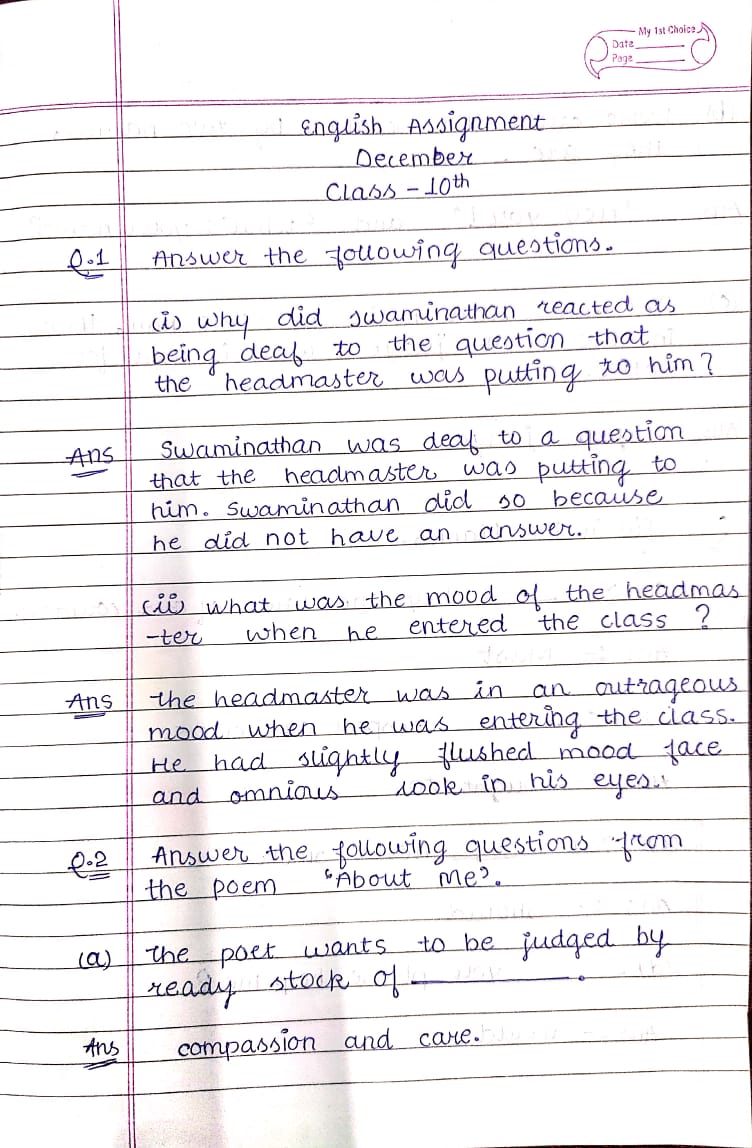 My 1st Choice
Date
Page
English Assignment
December
Class - 10th
Q.1 Answer the following questions.
(i) why did swaminathan reacted as
being deaf to the question that
the headmaster was putting to him?
Ans Swaminathan was deaf to a question
that the headmaster was putting to
him. Swaminathan did so because
he did not have an answer.
(ii) what was the mood of the headmas
-ter when he entered the class ?
Ans the headmaster was in an outrageous
mood when he was entering the class.
He had slightly flushed mood face
and omnious look in his eyes.
Q.2 Answer the following questions from
the poem "About me".
(a) the poet wants to be judged by
ready stock of ________.
Ans compassion and care.